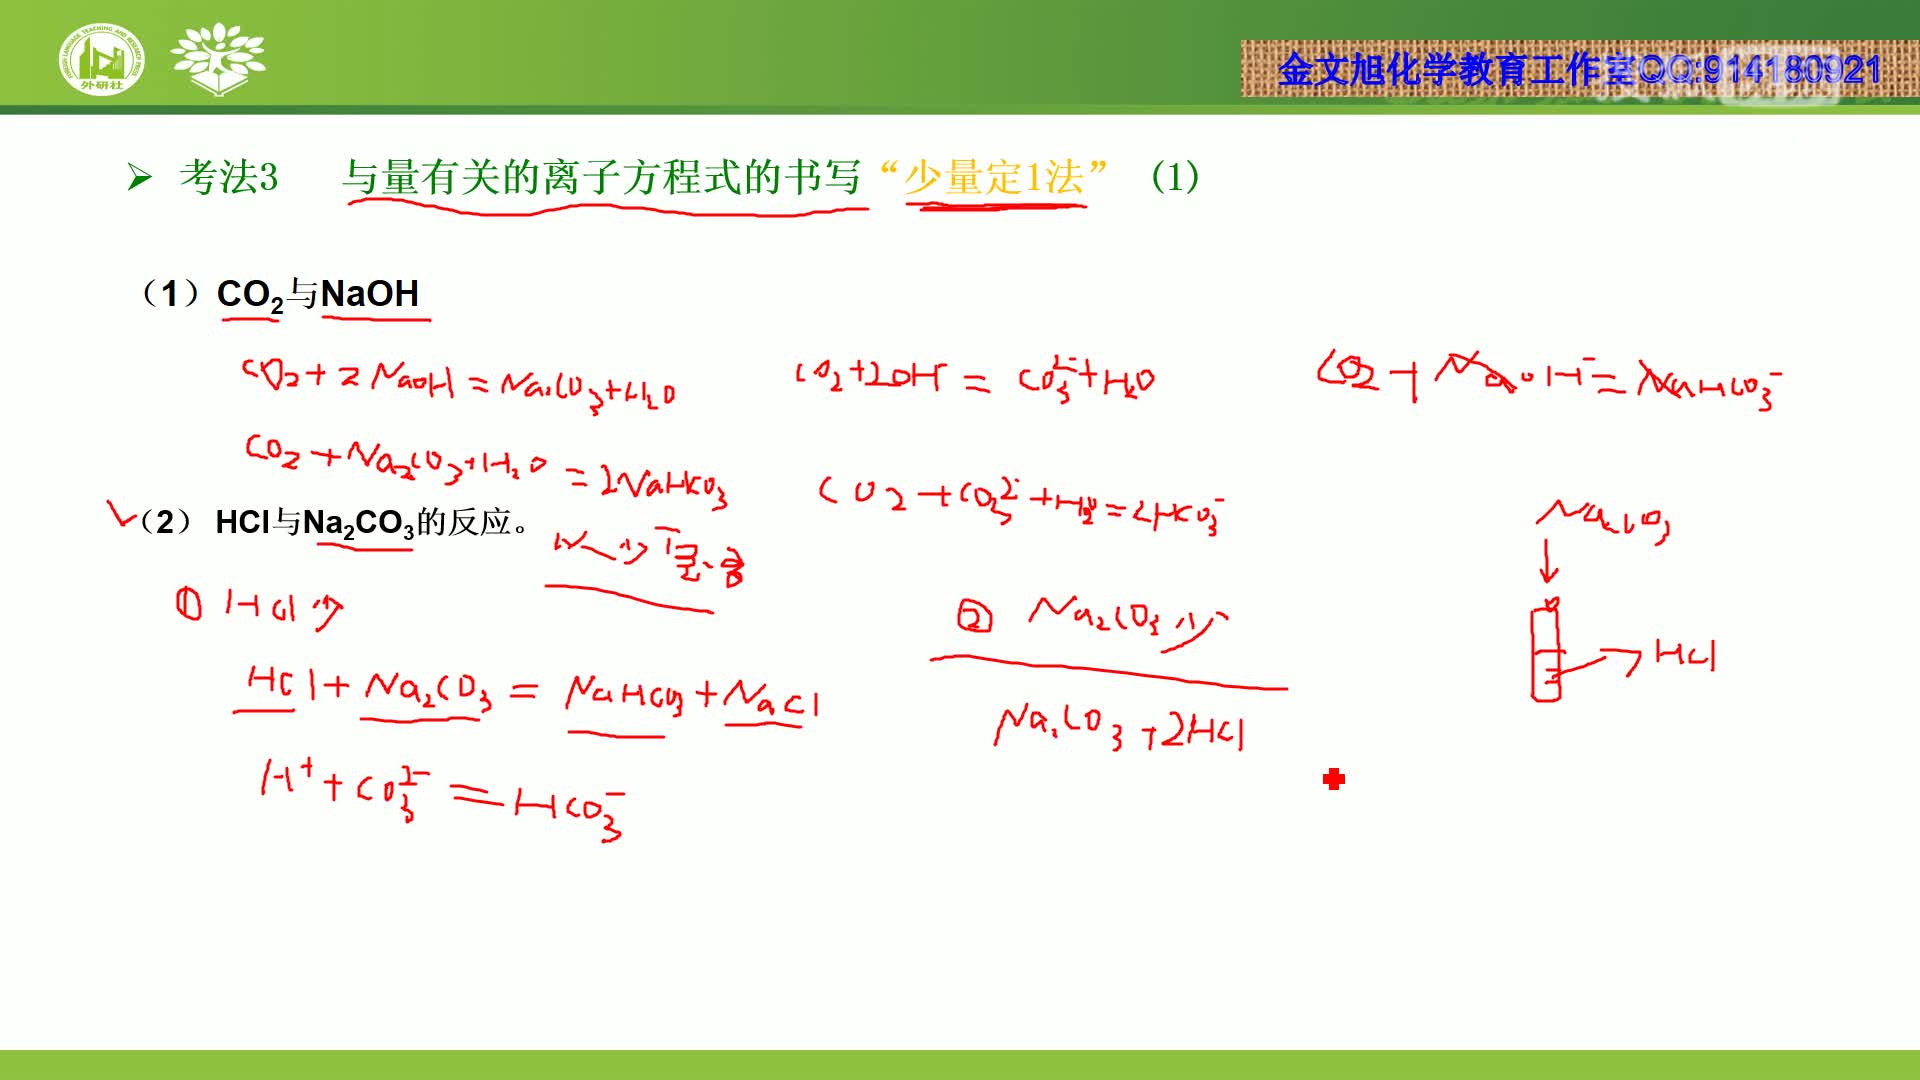 外研社
金文旭化学教育工作室QQ:914180921
➢ 考法3 与量有关的离子方程式的书写“少量定1法” (1)
（1）CO₂与NaOH
CO₂+2NaOH=Na₂CO₃+H₂O
CO₂+2OH⁻=CO₃²⁻+H₂O
CO₂+NaOH⁻=NaHCO₃⁻
CO₂+Na₂CO₃+H₂O=2NaHCO₃
CO₂+CO₃²⁻+H₂O=2HCO₃⁻
（2） HCl与Na₂CO₃的反应。
Na₂CO₃
① HCl少
② Na₂CO₃少
HCl
HCl+Na₂CO₃=NaHCO₃+NaCl
Na₂CO₃+2HCl
H⁺+CO₃²⁻=HCO₃⁻